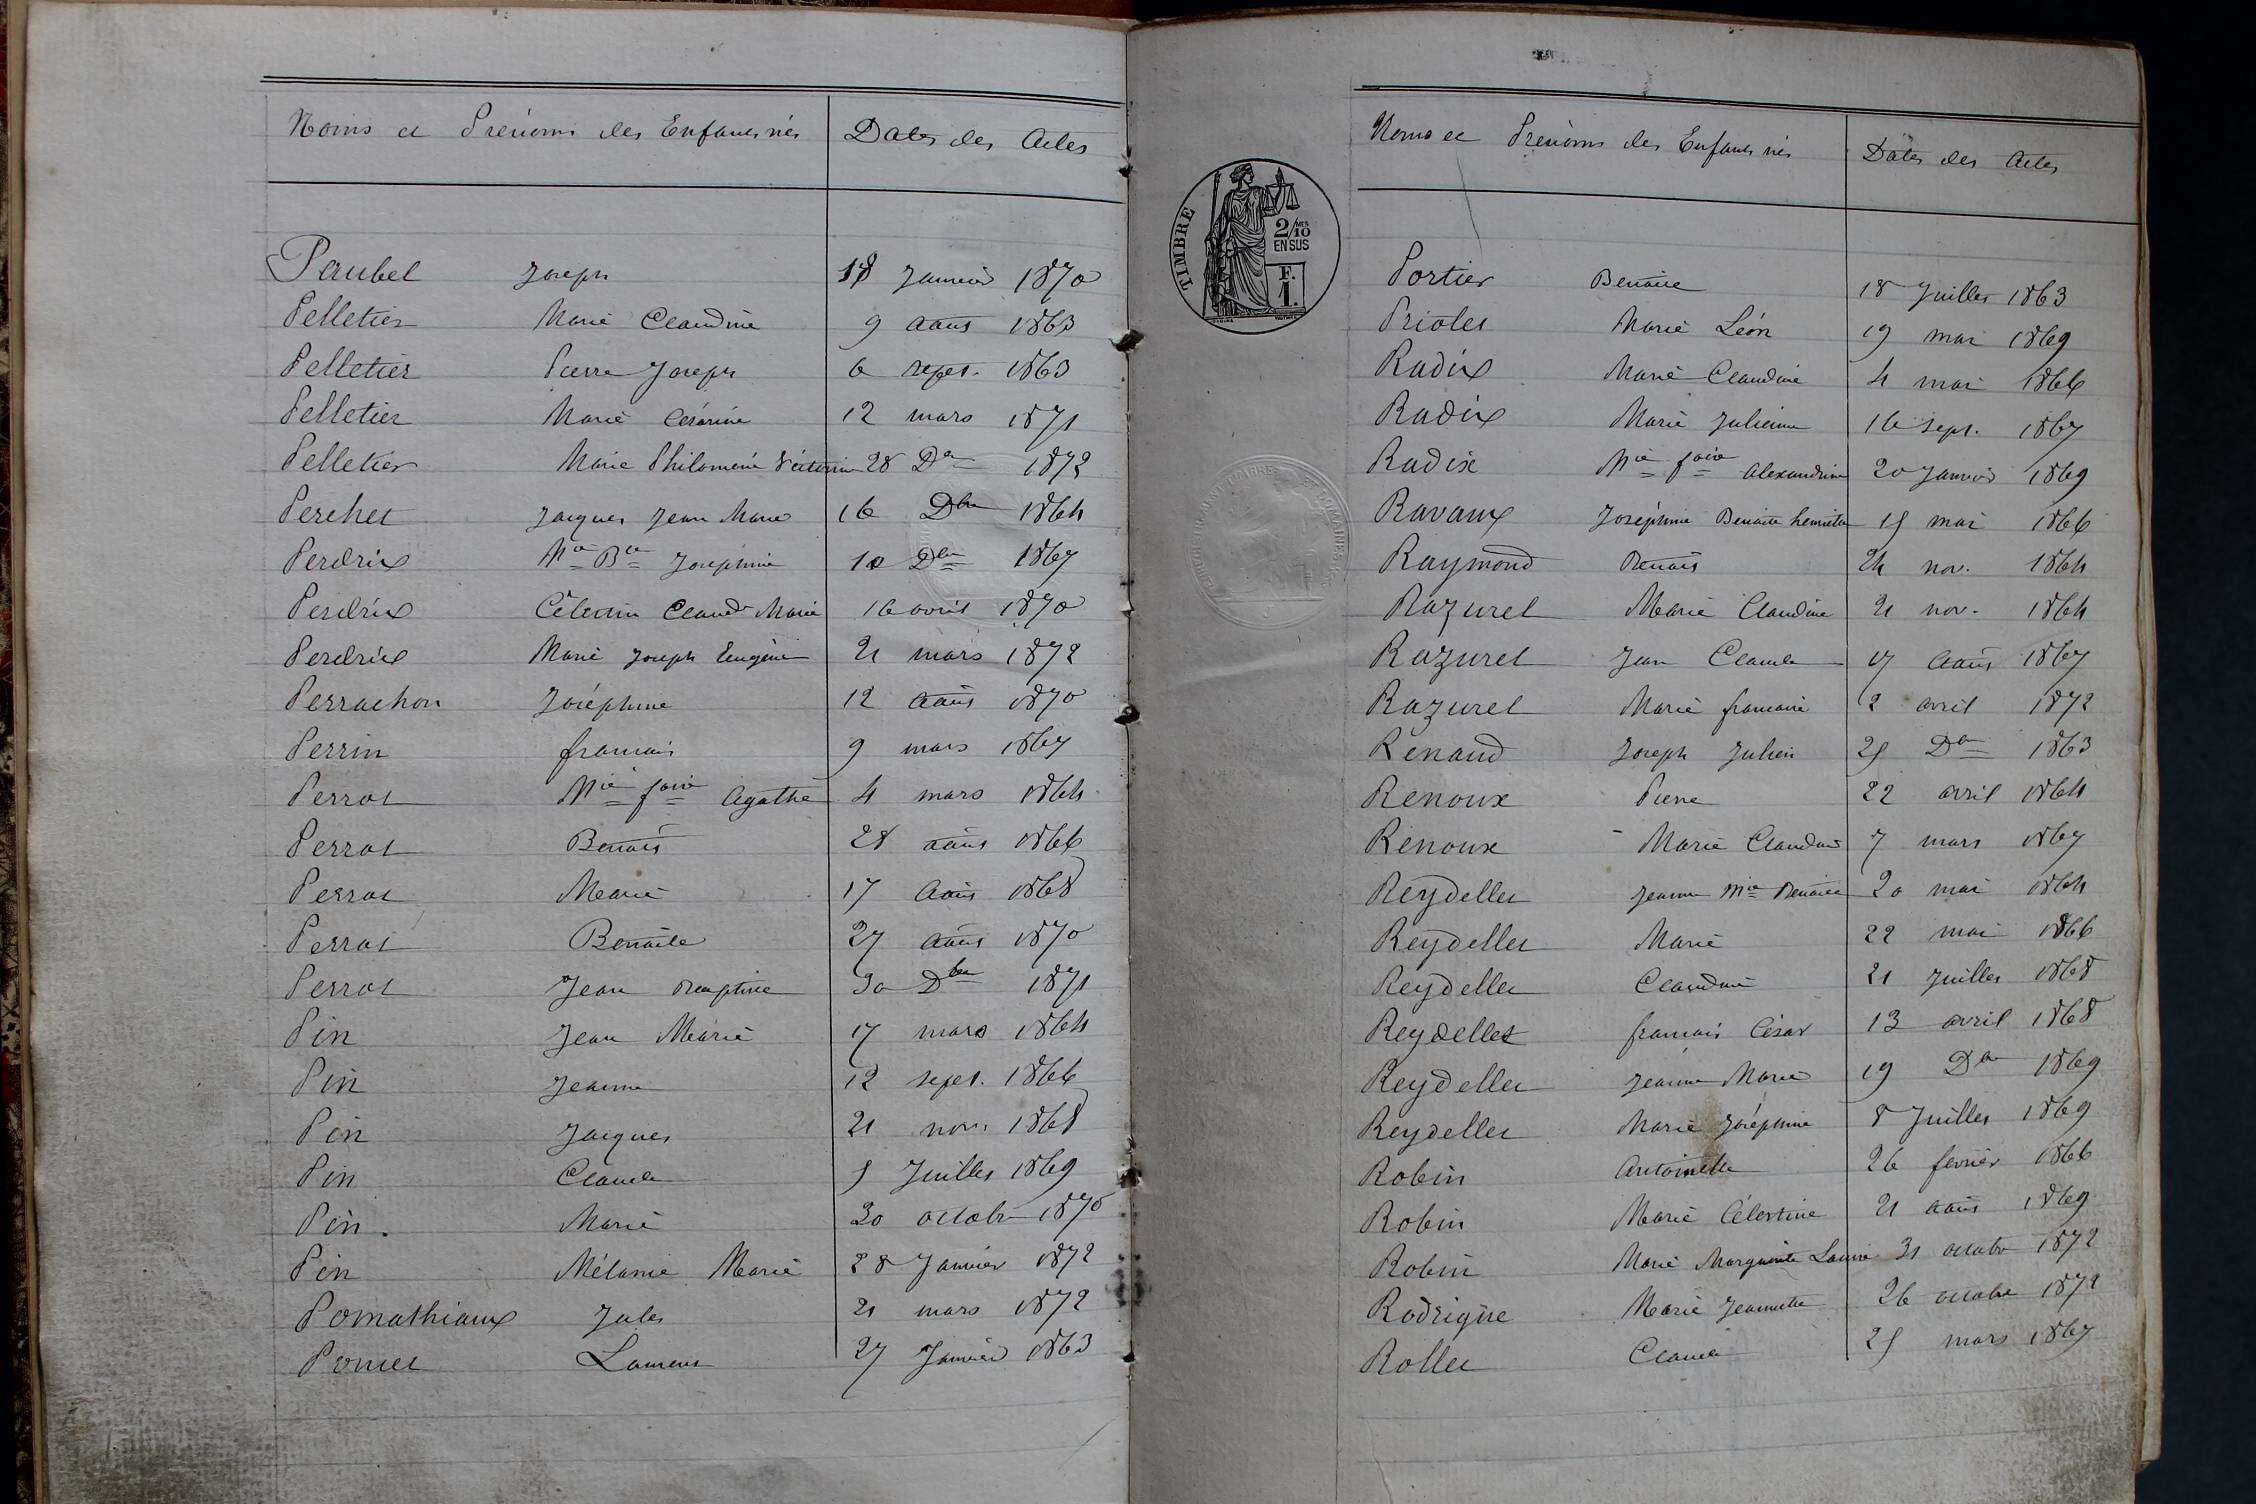 Noms et Prénoms des Enfants nés Dates des Actes
Paubel Joseph 18 Janvier 1870
Pelletier Marie Claudine 9 août 1863
Pelletier Pierre Joseph 6 sept. 1863
Pelletier Marie Césarine 12 mars 1871
Pelletier Marie Philomène Victorine 28 Dbre 1872
Perchet Jacques Jean Marie 16 Dbre 1864
Perdrix Mie Bte Joséphine 10 Dbre 1867
Perdrix Célestin Claude Marie 16 avril 1870
Perdrix Marie Joseph Eugénie 21 mars 1872
Perrachon Joséphine 12 août 1870
Perrin françois 9 mars 1867
Perrot Mie foise Agathe 4 mars 1864
Perrot Benoit 28 août 1866
Perrot Marie 17 Août 1868
Perrot Benoite 27 août 1870
Perrot Jean Baptiste 30 Dbre 1871
Pin Jean Marie 17 mars 1864
Pin Jeanne 12 sept. 1866
Pin Jacques 21 nov. 1868
Pin Claude 5 Juillet 1869
Pin. Marie 30 octobre 1870
Pin Mélanie Marie 28 Janvier 1872
Pomathiaux Jules 21 mars 1872
Poncet Laurent 27 Janvier 1863
TIMBRE
2/10 MES
EN SUS
F.
1.
Noms et Prénoms des Enfants nés Dates des Actes
Portier Benoite 18 Juillet 1863
Priolet Marie Léon 19 mai 1869
Radix Marie Claudine 4 mai 1866
Radix Marie Julienne 16 sept. 1867
Radix Mie foise Alexandrine 20 Janvier 1869
Ravaux Joséphine Benoite henriette 15 mai 1866
Raymond Benoit 24 nov. 1864
Razurel Marie Claudine 21 nov. 1864
Razurel Jean Claude 17 Août 1867
Razurel Marie françoise 2 avril 1872
Renaud Joseph Julien 25 Dbre 1863
Renoux Pierre 22 avril 1864
Renoux Marie Claudine 7 mars 1867
Reydellet Jeanne Mie Benoite 20 mai 1864
Reydellet Marie 22 mai 1866
Reydellet Claudine 21 Juillet 1868
Reydellet françois César 13 avril 1868
Reydellet Jeanne Marie 19 Dbre 1869
Reydellet Marie Joséphine 8 Juillet 1869
Robin Antoinette 26 février 1866
Robin Marie Célestine 21 août 1869
Robin Marie Marguerite Laurie 31 octobre 1872
Rodrigue Marie Jeannette 26 octobre 1872
Rollet Claude 25 mars 1867